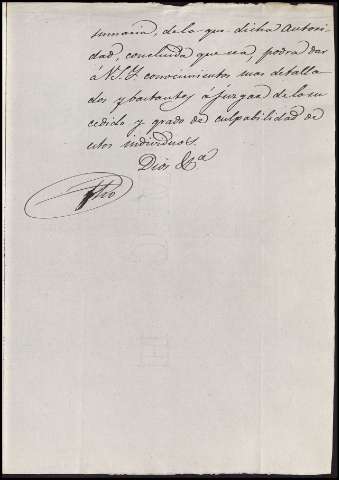 sumaria, de la que dicha Autori-
dad, concluida que sea, podrá dar
á V.S.Y. conocimientos mas detalla
dos y bastantes á juzgar de lo su
cedido y grado de culpabilidad de
estos individuos.
Dios &a